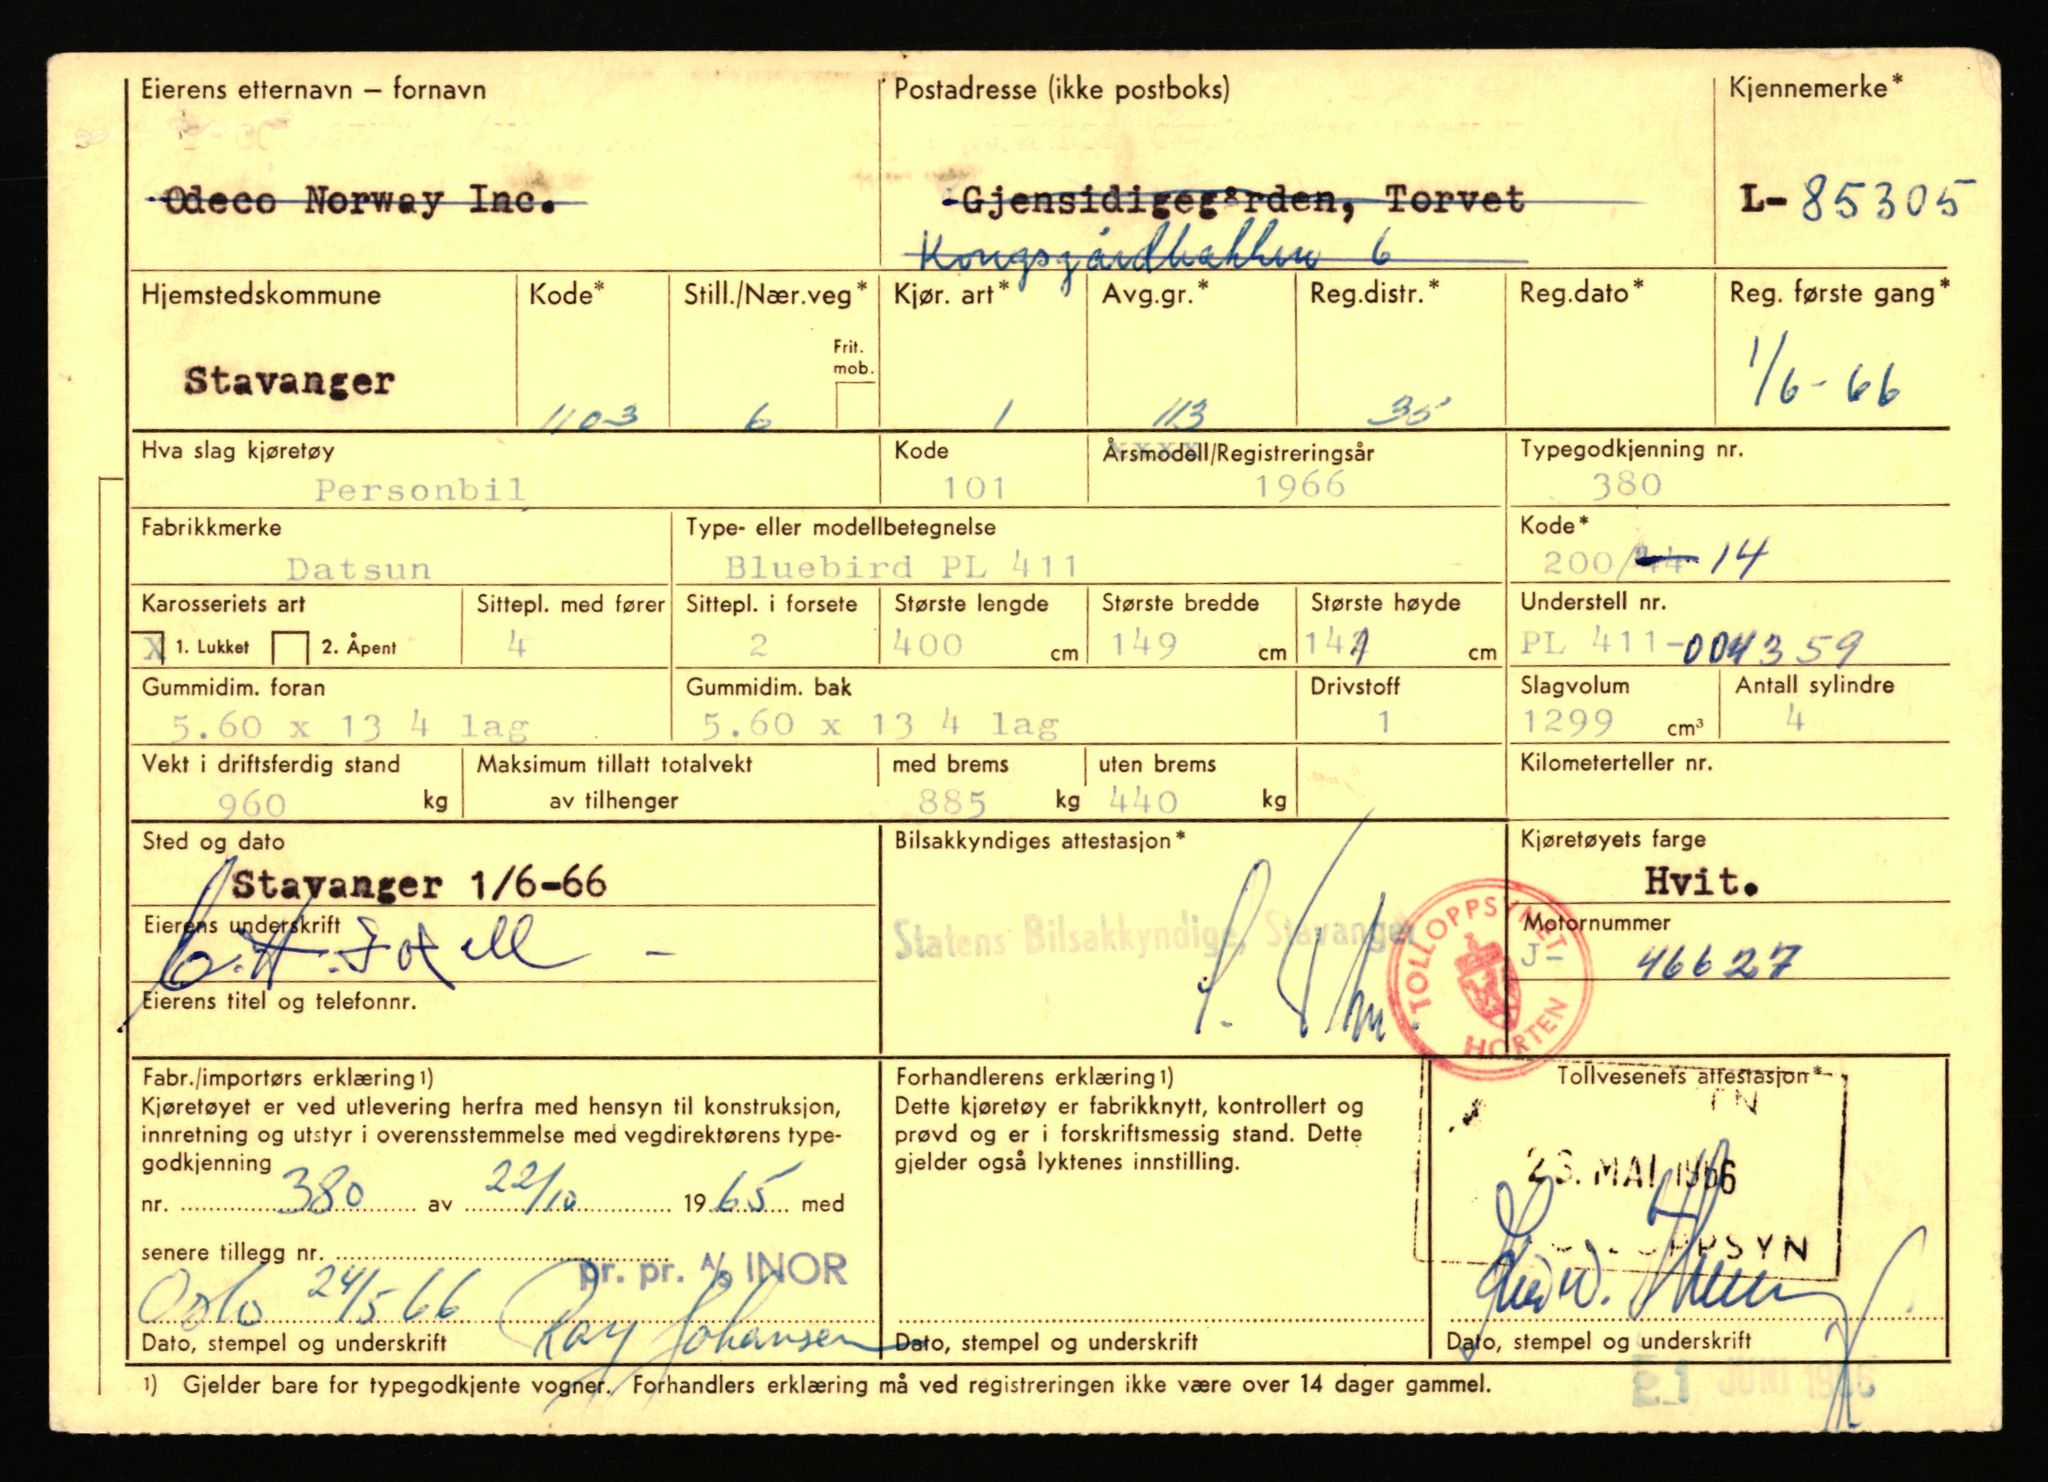 Eierens etternavn – fornavn
Postadresse (ikke postboks)
Kjennemerke*
Odeco Norway Inc.
Gjensidigegården, Torvet
L-85305
Kongsgårdbakken 6
Hjemstedskommune
Kode*
Still./Nær.veg*
Kjør. art*
Avg.gr.*
Reg.distr.*
Reg.dato*
Reg. første gang*
Frit. mob.
Stavanger
1103
6
1
113
35
1/6-66
Hva slag kjøretøy
Kode
Årsmodell/Registreringsår
Typegodkjenning nr.
Personbil
101
1966
380
Fabrikkmerke
Type- eller modellbetegnelse
Kode*
Datsun
Bluebird PL 411
200/ 14
Karosseriets art
Sittepl. med fører
Sittepl. i forsete
Største lengde
Største bredde
Største høyde
Understell nr.
X 1. Lukket
2. Åpent
4
2
400 cm
149 cm
141 cm
PL 411-004359
Gummidim. foran
Gummidim. bak
Drivstoff
Slagvolum
Antall sylindre
5.60 x 13 4 lag
5.60 x 13 4 lag
1
1299 cm³
4
Vekt i driftsferdig stand
Maksimum tillatt totalvekt
med brems
uten brems
Kilometerteller nr.
960 kg
av tilhenger
885 kg
440 kg
Sted og dato
Bilsakkyndiges attestasjon*
Kjøretøyets farge
Stavanger 1/6-66
Hvit.
Eierens underskrift
Statens Bilsakkyndige, Stavanger
TOLLOPPSYNET
HORTEN
Motornummer
J-46627
Eierens titel og telefonnr.
Fabr./importørs erklæring1)
Kjøretøyet er ved utlevering herfra med hensyn til konstruksjon,
innretning og utstyr i overensstemmelse med vegdirektørens type-
godkjenning
nr. 380 av 22/10 1965 med
senere tillegg nr.
pr. pr. A/S INOR
Oslo 24/5 66 Ray Johansen
Dato, stempel og underskrift
Forhandlerens erklæring1)
Dette kjøretøy er fabrikknytt, kontrollert og
prøvd og er i forskriftsmessig stand. Dette
gjelder også lyktenes innstilling.
Dato, stempel og underskrift
Tollvesenets attestasjon*
MAI 1966
Dato, stempel og underskrift
1) Gjelder bare for typegodkjente vogner. Forhandlers erklæring må ved registreringen ikke være over 14 dager gammel.
21 JUNI 1966